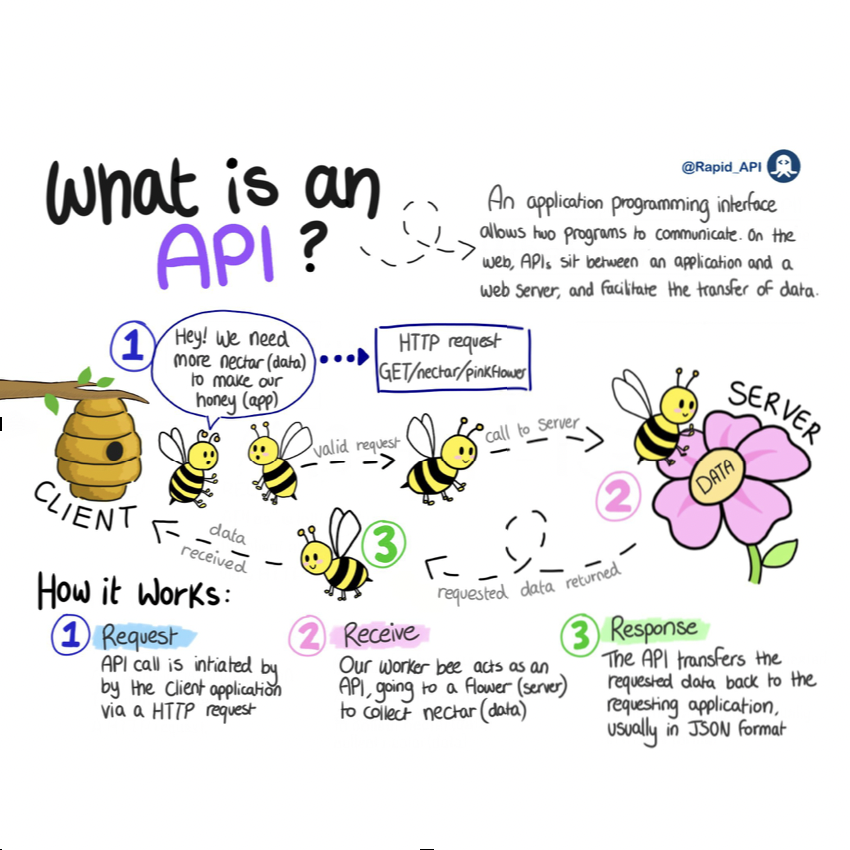 What is an
API?
@Rapid_API
An application programming interface
allows two programs to communicate. On the
web, APIs sit between an application and a
web server, and facilitate the transfer of data.
1
Hey! We need
more nectar (data)
to make our
honey (app)
HTTP request
GET/nectar/pinkflower
CLIENT
valid request
call to server
SERVER
DATA
2
3
data
received
requested data returned
How it Works:
1 Request
API call is intiated by
by the Client application
via a HTTP request
2 Receive
Our worker bee acts as an
API, going to a flower (server)
to collect nectar (data)
3 Response
The API transfers the
requested data back to the
requesting application,
usually in JSON format